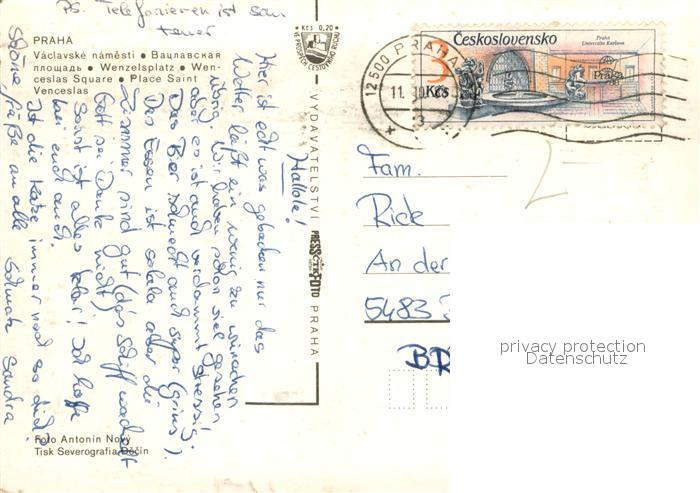 PS. Telefonieren ist sau
teuer
PRAHA
Václavské náměstí • Вацлавская
площадь • Wenzelsplatz • Wen-
ceslas Square • Place Saint
Venceslas
Kčs 0,20
VE PROSPĚCH CESTOVNÍHO RUCHU
Československo
Praha
Universita Karlova
3 Kčs
Praga
12500 PRAHA
11.
3
VYDAVATELSTVÍ PRESSFOTO PRAHA
Hallole!
Hier ist echt was geboten nur das
Wetter läßt ein wenig zu wünschen
übrig. Wir haben schon viel gesehen,
aber es ist auch verdammt stressig.
Das Bier schmeckt auch super (grins).
Das Essen ist aber die
Zimmer sind gut (das Schiff wackelt
Gott sei Dank nicht).
Sonst ist alles klar! Ich hoffe
bei euch auch.
Ist die Katze immer noch so dick?
Schöne Grüße an alle Sandra
Fam.
Rick
An der
5483
BRD
Foto Antonín Nový
Tisk Severografia Děčín
privacy protection
Datenschutz